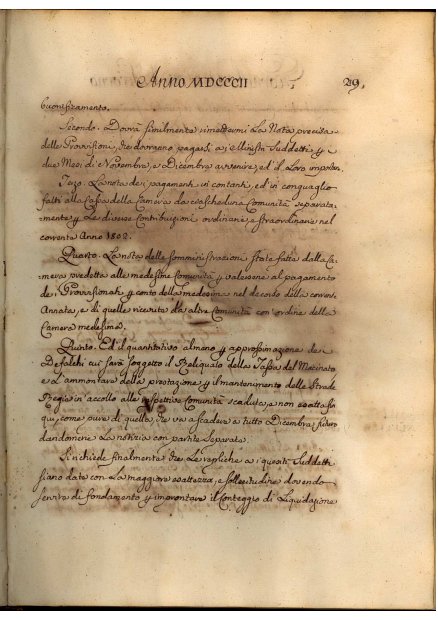 Anno MDCCCII
29.
buonificamento.
Secondo. Dovrà similmente rimettermi La Nota precisa
delle Provvisioni, che dovranno pagarsi a i Ministri Suddetti p
due Mesi di Novembre, e Dicembre avvenire, ed il Loro importo.
Terzo. La nota dei pagamenti in contanti, ed in conguaglio
fatti alla Cassa della Camera da ciascheduna Comunità separata-
mente p Le diverse Contribuzioni ordinarie, e straordinarie nel
corrente Anno 1802.
Quarto. La nota delle somministrazioni state fatte dalla Ca-
mera predetta alle medesime Comunità p valersene al pagamento
de Provvisionati p conto della medesima nel decorso della corrente
Annata, e di quelle ricevute da altre Comunità con ordine della
Camera medesima.
Quinto. Ed il quantitativo almeno p approssimazione dei
Defalchi cui sarà soggetto il Reliquato della Tassa del Macinato
e L'ammontare della prestazione p il mantenimento delle Strade
Regie in accollo alle rispettive Comunità scaduta, e non esatta fin
qui, come pure di quella, che va a scadere a tutto Dicembre
dandomene La notizia con partite Separate.
Si richiede finalmente che Le repliche a i quesiti Suddetti
siano date con La maggiore esattezza, e sollecitudine dovendo
servire di fondamento p improntare il Conteggio di Liquidazione